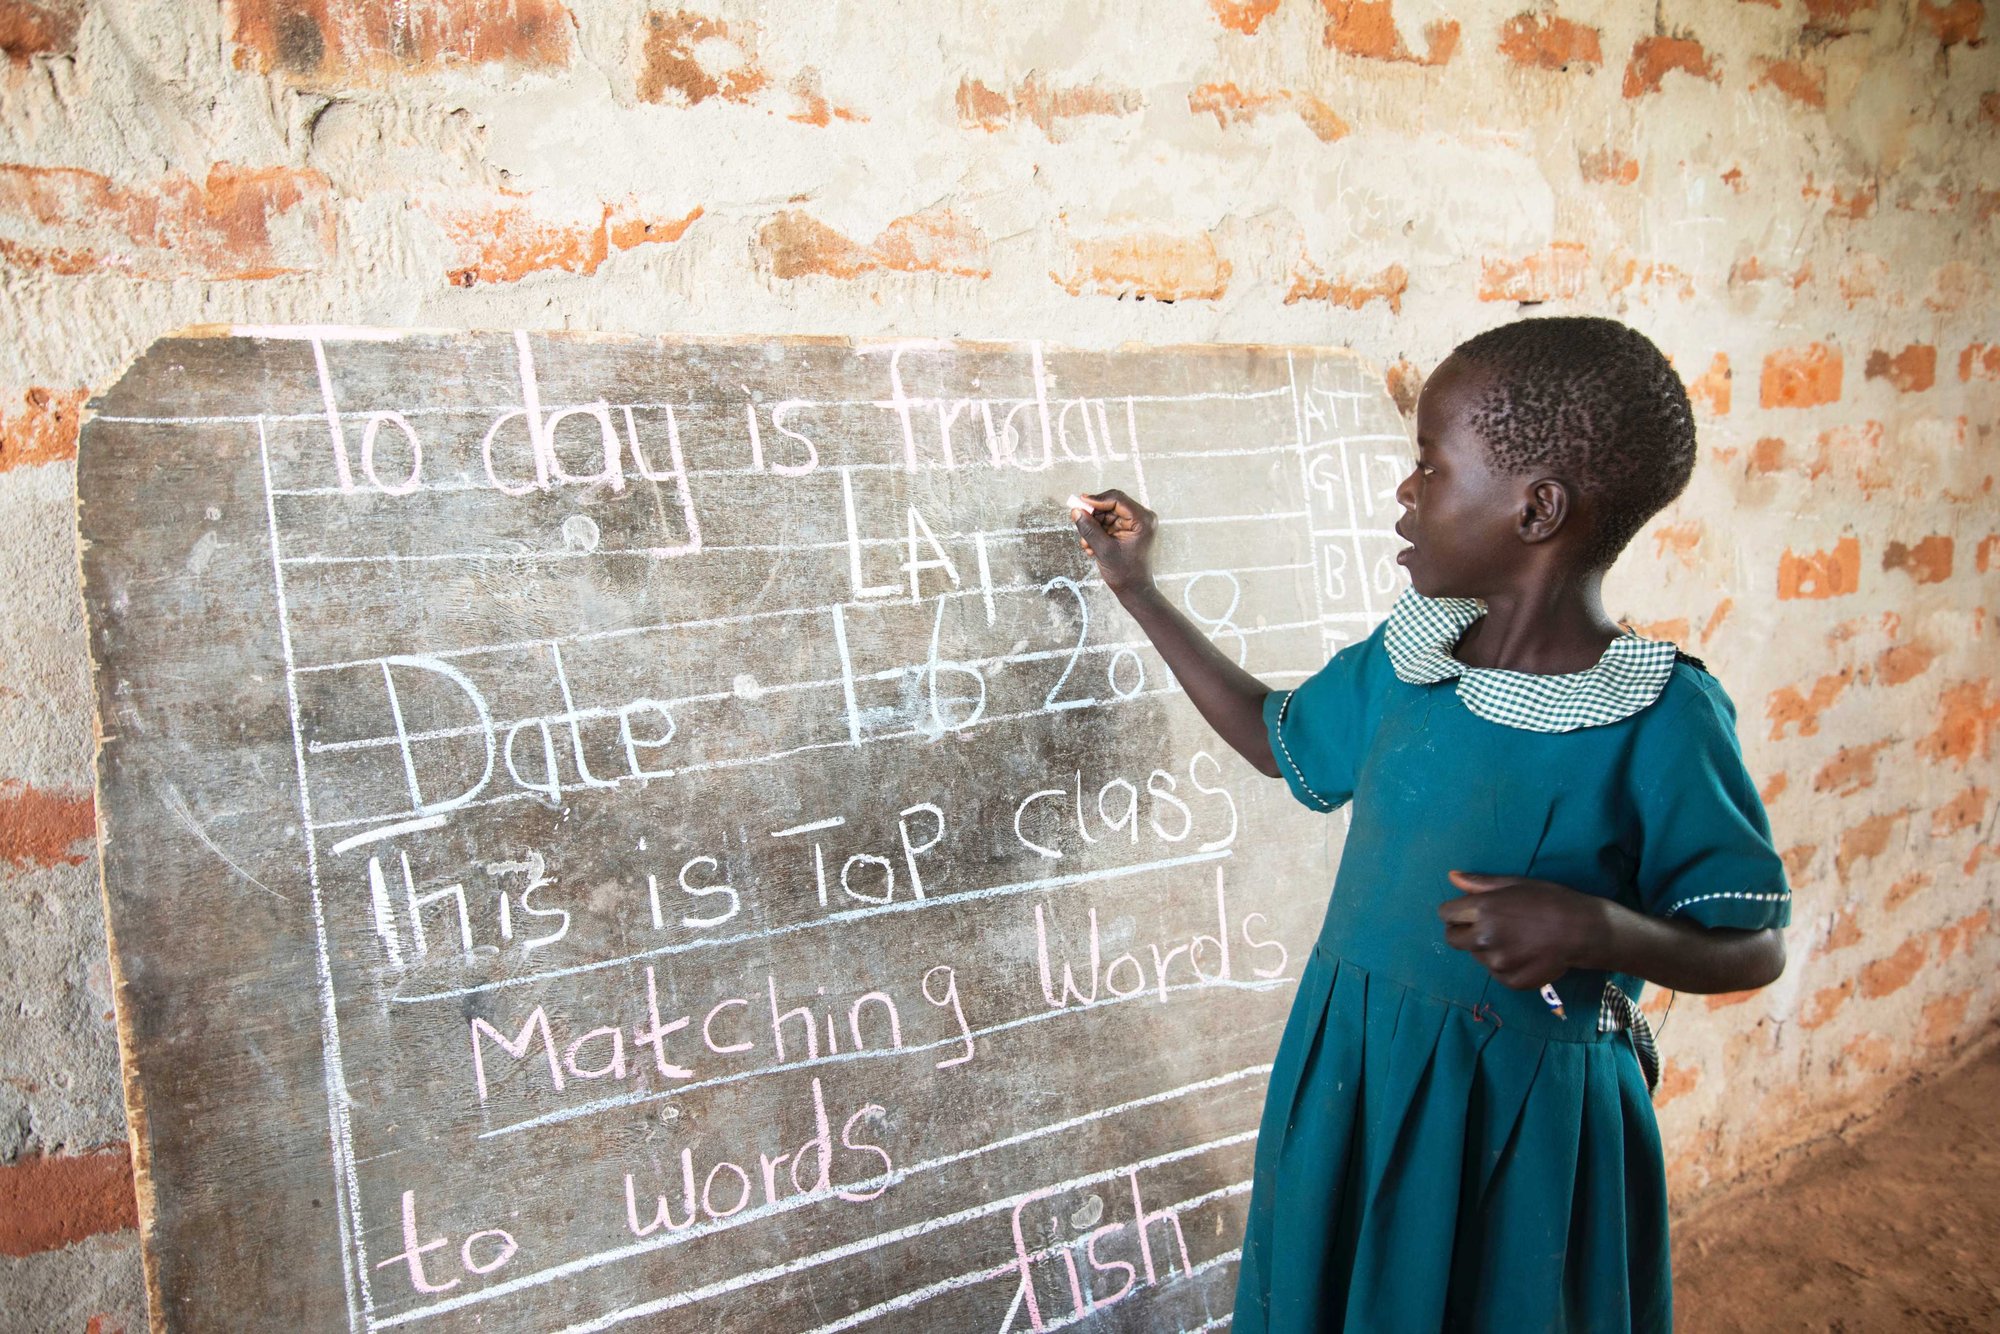 To day is friday
LA1
Date 1-6 2018
This is Top class
Matching Words
to words
fish
ATT
G 17
B